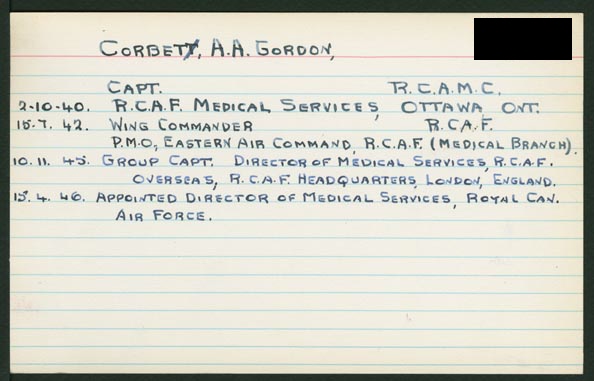 CORBETT, A.A. GORDON,
CAPT. R.C.A.M.C.
2-10-40. R.C.A.F. MEDICAL SERVICES, OTTAWA ONT.
15.7.42. WING COMMANDER R.C.A.F.
P.M.O, EASTERN AIR COMMAND, R.C.A.F. (MEDICAL BRANCH).
10.11.45. GROUP CAPT. DIRECTOR OF MEDICAL SERVICES, R.C.A.F.
OVERSEAS, R.C.A.F. HEADQUARTERS, LONDON, ENGLAND.
15.4.46. APPOINTED DIRECTOR OF MEDICAL SERVICES, ROYAL CAN.
AIR FORCE.